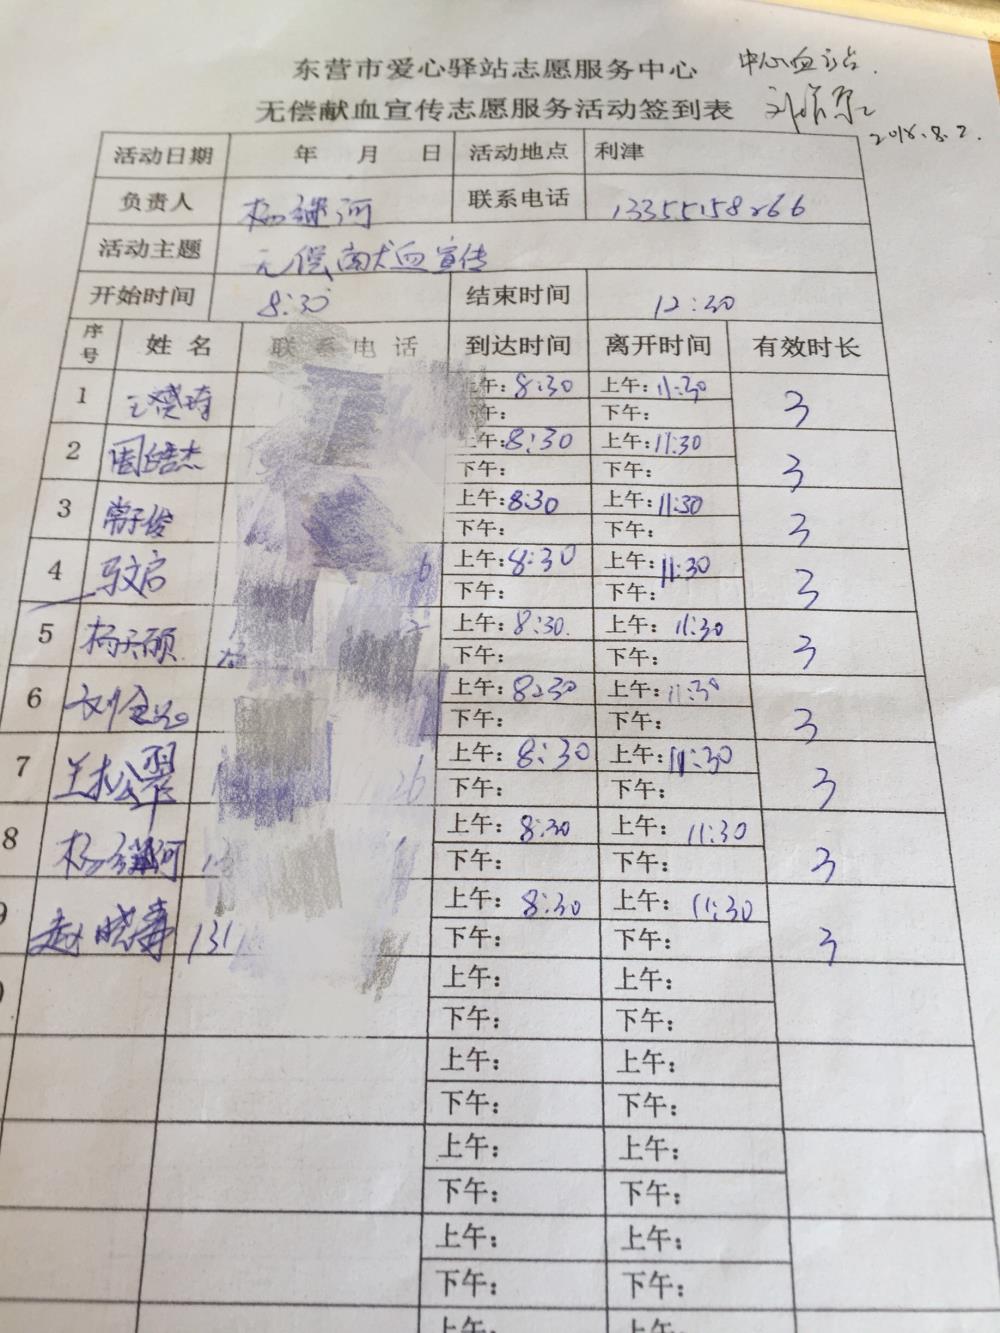 东营市爱心驿站志愿服务中心 中心血站
无偿献血宣传志愿服务活动签到表
2018.8.2.
活动日期 年 月 日 活动地点 利津
负责人 杨继河 联系电话 13355158266
活动主题 无偿献血宣传
开始时间 8:30 结束时间 12:30
序号 姓名 联系电话 到达时间 离开时间 有效时长
1 上午: 8:30 上午: 11:30 3
下午: 下午:
2 周皓杰 上午: 8:30 上午: 11:30 3
下午: 下午:
3 常子俊 上午: 8:30 上午: 11:30 3
下午: 下午:
4 马文启 6 上午: 8:30 上午: 11:30 3
下午: 下午:
5 杨天硕 上午: 8:30. 上午: 11:30 3
下午: 下午:
6 上午: 8:30 上午: 11:30 3
下午: 下午:
7 兰松翠 26 上午: 8:30 上午: 11:30 3
下午: 下午:
8 杨继河 上午: 8:30 上午: 11:30 3
下午: 下午:
9 赵晓寿 131 上午: 8:30 上午: 11:30 3
下午: 下午:
上午: 上午:
下午: 下午:
上午: 上午:
下午: 下午:
上午: 上午:
下午: 下午:
上午: 上午:
下午: 下午:
上午: 上午: